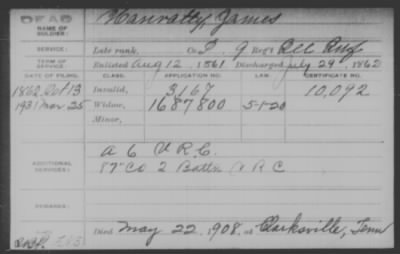 DEAD
Hanratty, James
NAME OF SOLDIER:
SERVICE:
Late rank, Co. I, 9 Reg't Ill Inf
TERM OF SERVICE:
Enlisted Aug 12, 1861 Discharged July 29, 1862
DATE OF FILING. CLASS. APPLICATION NO. LAW. CERTIFICATE NO.
1862 Oct 13 Invalid, 3,167 10,092
1931 Mar 25 Widow, 1687800 5-1-20
Minor,
ADDITIONAL SERVICES:
A 6 V R C.
87" Co 2 Battn V R C
REMARKS:
Died May 22, 1908, at Clarksville, Tenn